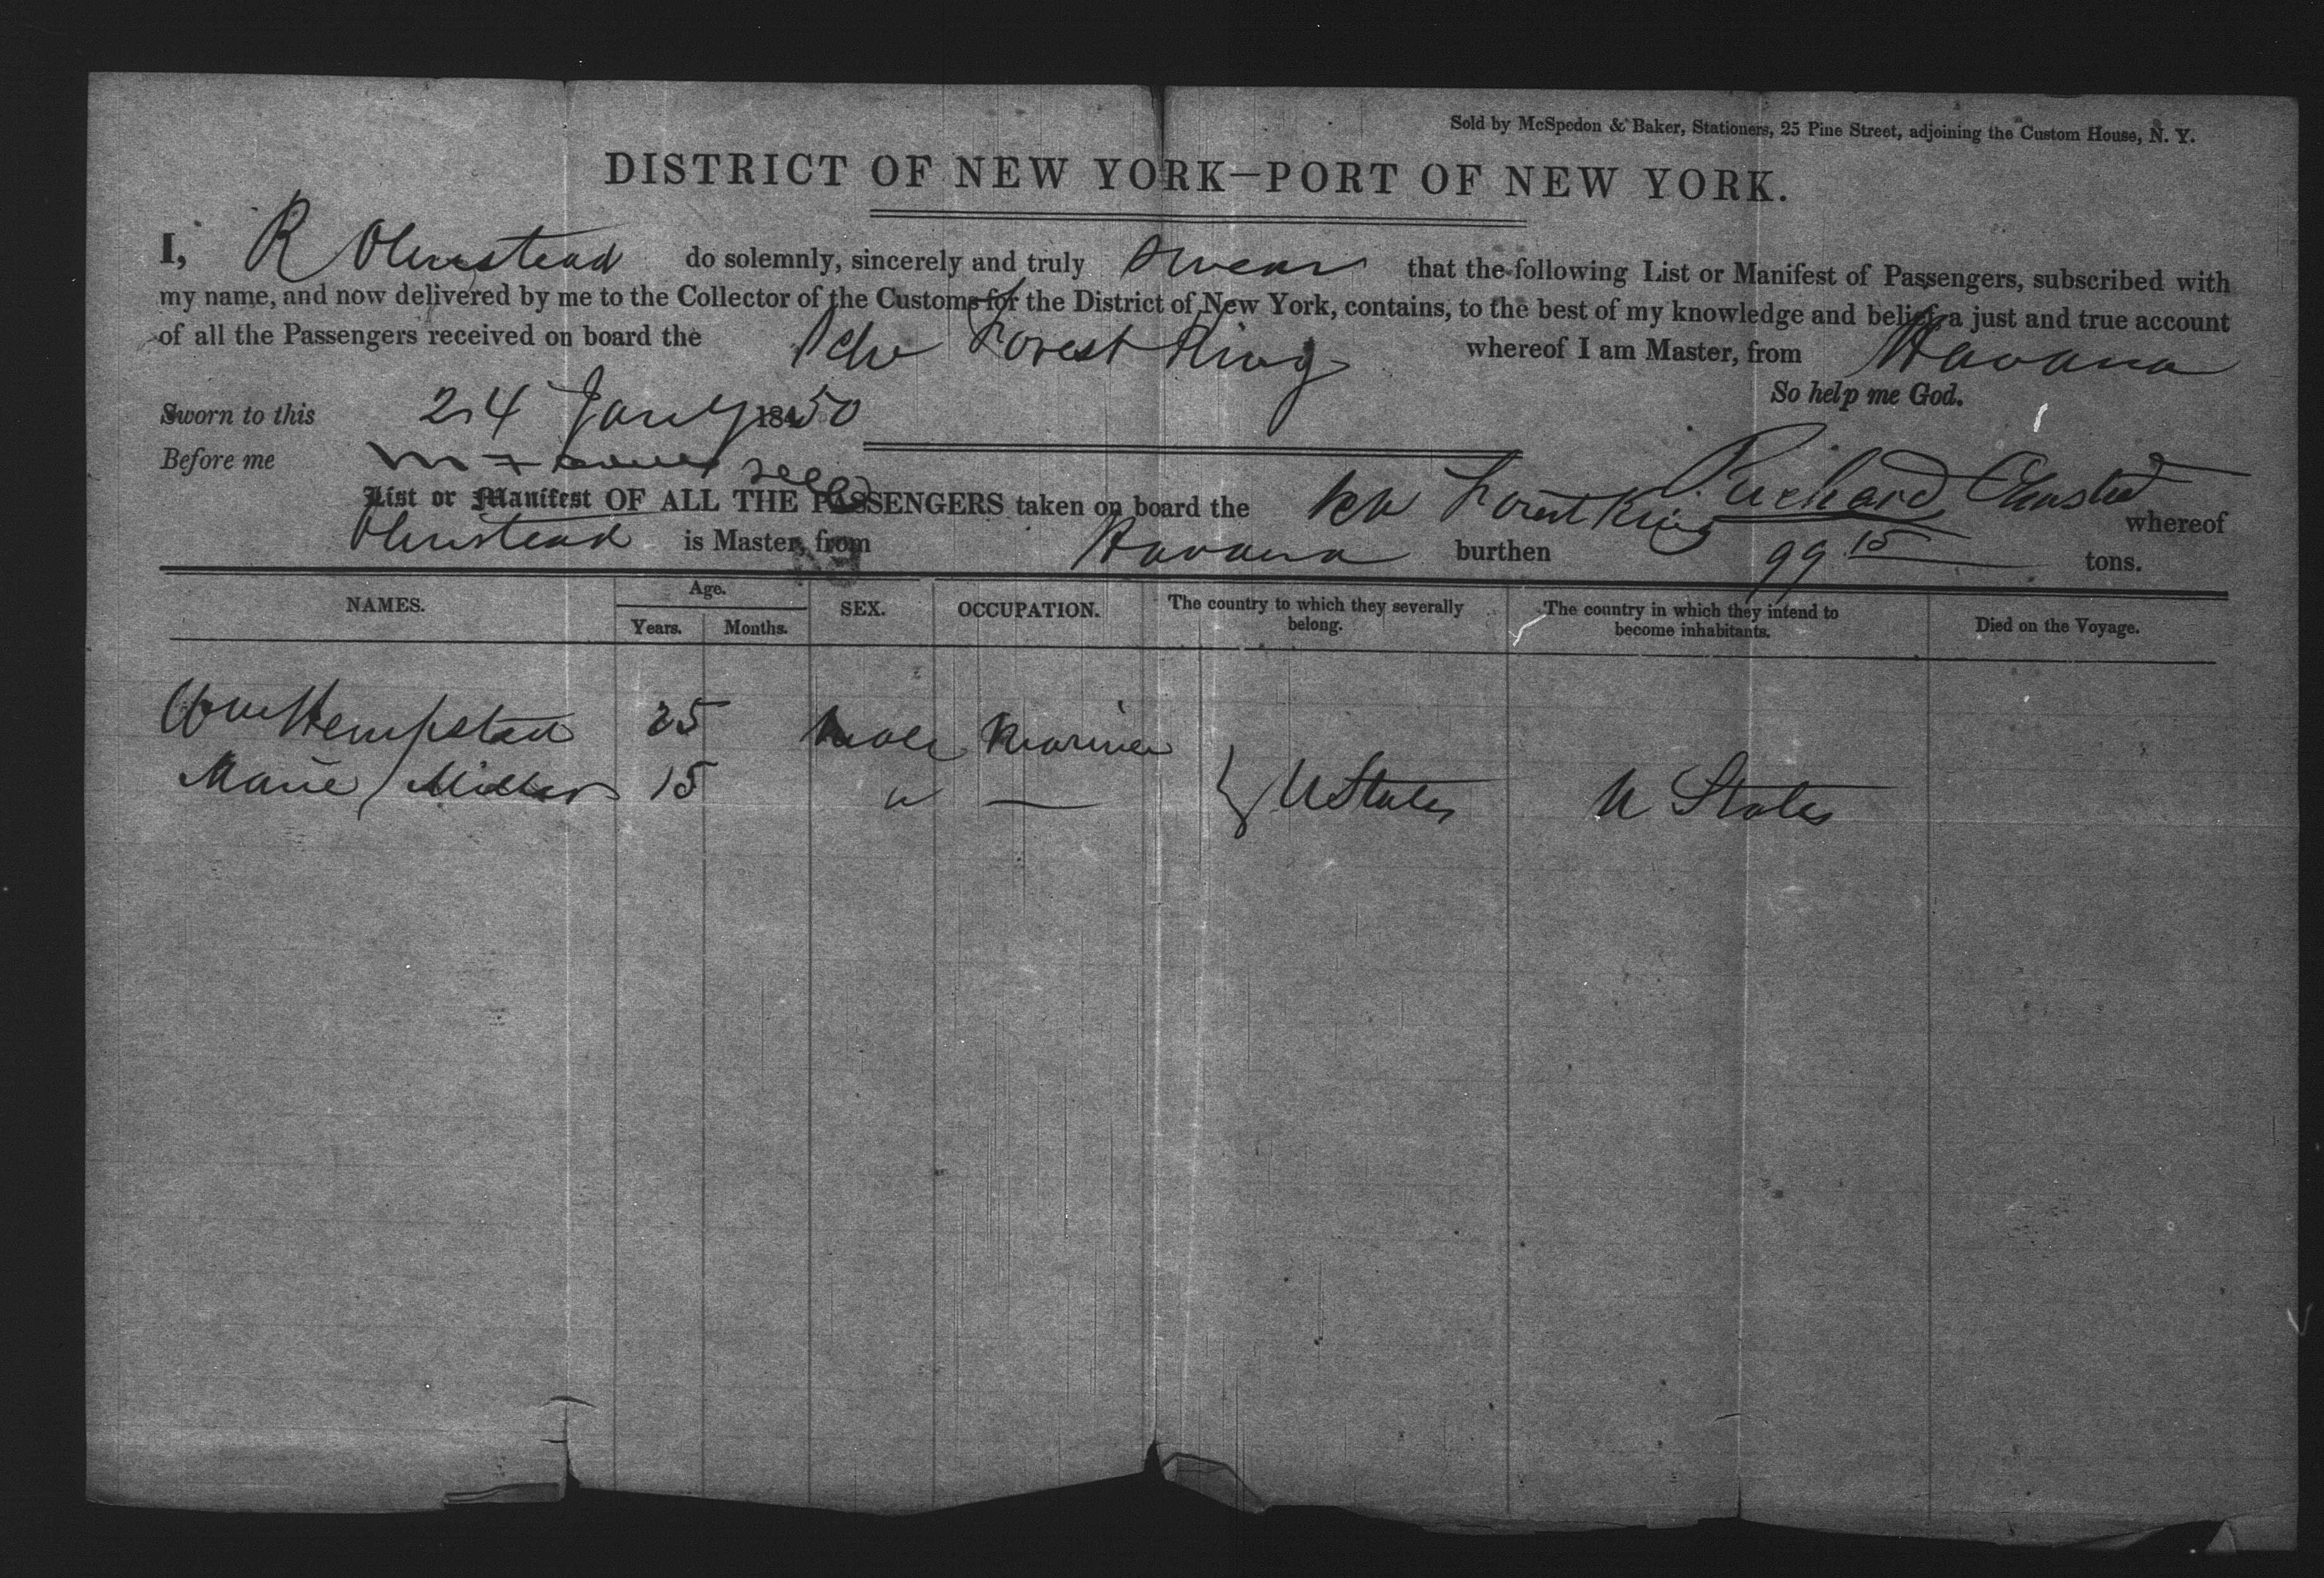 Sold by McSpedon & Baker, Stationers, 25 Pine Street, adjoining the Custom House, N. Y.
DISTRICT OF NEW YORK—PORT OF NEW YORK.
I, R Olmstead do solemnly, sincerely and truly swear that the following List or Manifest of Passengers, subscribed with
my name, and now delivered by me to the Collector of the Customs for the District of New York, contains, to the best of my knowledge and belief, a just and true account
of all the Passengers received on board the Schr Forest King whereof I am Master, from Havana
So help me God.
Sworn to this 24 Jany 18450
Before me
Richard Olmsted
List or Manifest OF ALL THE PASSENGERS taken on board the Sch Forest King whereof
Olmstead is Master, from Havana burthen 99 15 tons.
NAMES. Age. SEX. OCCUPATION. The country to which they severally belong. The country in which they intend to become inhabitants. Died on the Voyage.
Years. Months.
Wm Hempstead 25 Male Mariner
Marie Miller 15 " — } U States U States